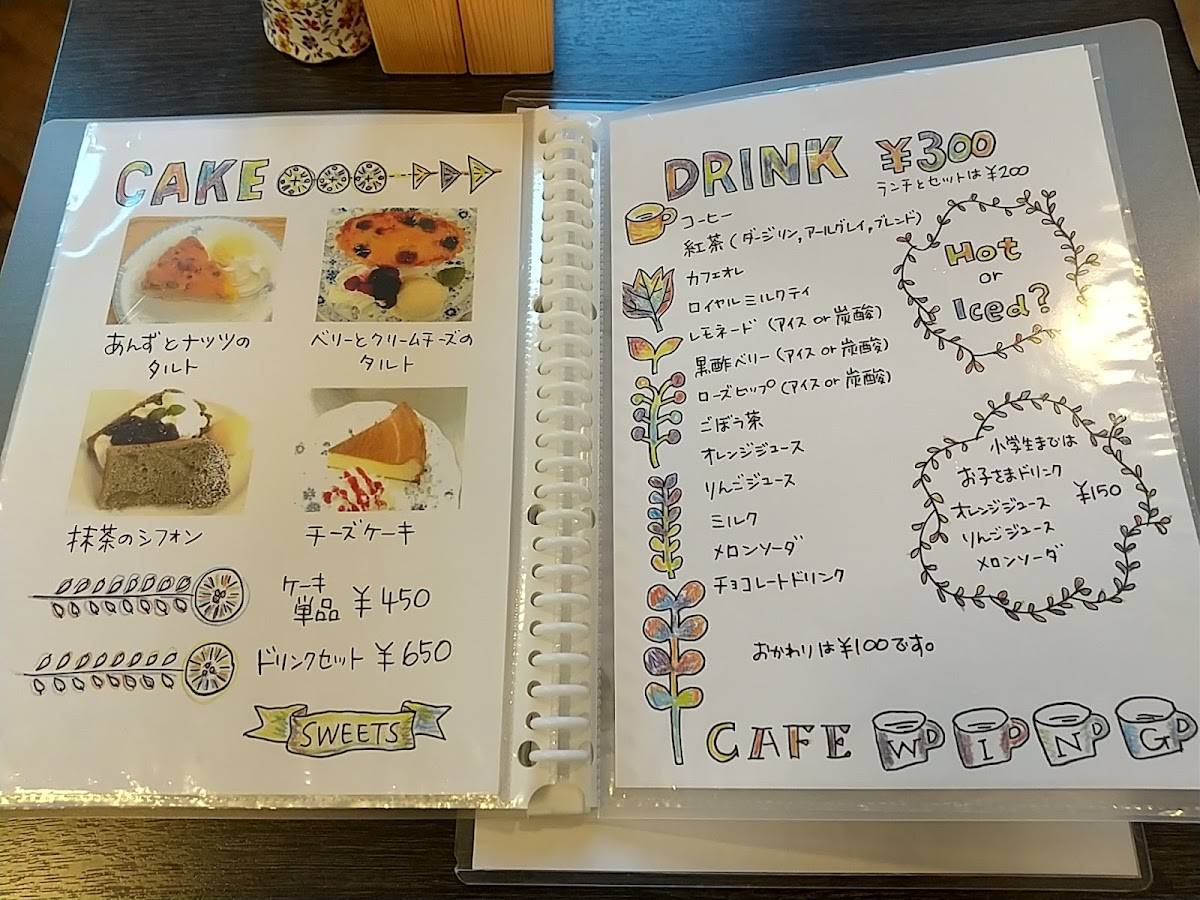 CAKE
あんずとナッツの
タルト
ベリーとクリームチーズの
タルト
抹茶のシフォン
チーズケーキ
ケーキ
単品 ¥450
ドリンクセット ¥650
SWEETS
DRINK ¥300
ランチとセットは¥200
コーヒー
紅茶(ダージリン,アールグレイ,ブレンド)
カフェオレ
ロイヤルミルクティ
レモネード(アイス or 炭酸)
黒酢ベリー(アイス or 炭酸)
ローズヒップ(アイス or 炭酸)
ごぼう茶
オレンジジュース
りんごジュース
ミルク
メロンソーダ
チョコレートドリンク
Hot
or
Iced?
小学生までは
お子さまドリンク
¥150
オレンジジュース
りんごジュース
メロンソーダ
おかわりは¥100です。
CAFE WING